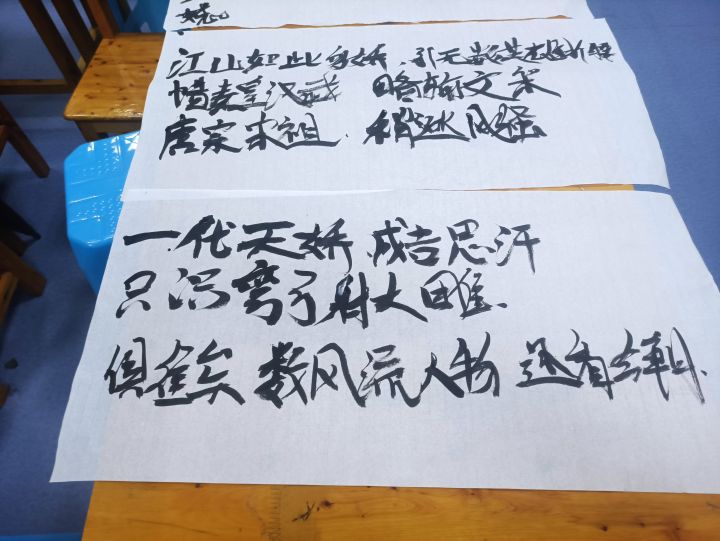 娆
江山如此多娇，引无数英雄竞折腰
惜秦皇汉武 略输文采
唐宗宋祖．稍逊风骚
一代天娇 成吉思汗
只识弯弓射大雕．
俱往矣 数风流人物 还看今朝．